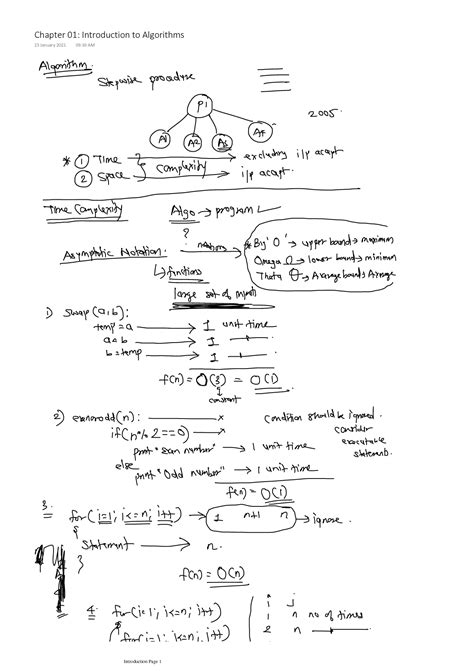 Chapter 01: Introduction to Algorithms
23 January 2021 08:49 AM
Algorithm.
Stepwise procedure
P1
2005.
A1 A2 A3 A4
* 1 Time → excluding i/p accept
complexity
2 Space → i/p accept.
Time Complexity Algo → program
?
Asymptotic Notation: → * Big 'O' → upper bound → maximum
Omega Ω → lower bound → minimum
Theta θ → Average bound → Average
↳ functions
large set of inputs
1) swap(a,b):
temp = a → 1 unit time
a = b → 1
b = temp → 1
f(n) = O(3) = O(1)
constant
2) evenorodd(n): → x condition should be ignored.
if(n%2==0) → x consider
executable
statement.
print "Even number" → 1 unit time
else
print "Odd number" → 1 unit time
f(n) = O(1)
3. for(i=1; i<=n; i++) → 1 n+1 n → ignore.
{
Statement → n.
}
f(n) = O(n)
4. for(i=1; i<=n; i++) i j
{ for(i=1; i<=n; i++) 1 n no of times
2 n →
Introduction Page 1